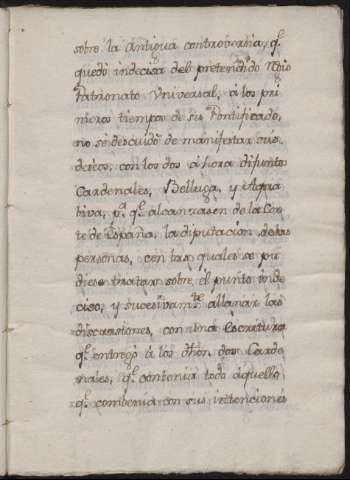 sobre la antigua controversia, q.e
quedó indecisa del pretendido R.o
Patronato Vniversal, á los pri
meros tiempos de su Pontificado,
no se descuidò de manifestar sus
deseos, con los dos áhora difuntos
Cardenales, Belluga, y Aqua
biva, p.a q.e alcanzasen de la Cor
te de España, la diputacion de tas
personas, con las quales se pu
diese tratar sobre el punto inde
ciso, y sucesivam.te allanar las
discusiones, con una Escritura
q.e entregó á los dhõs dos Carde
nales, q.e contenia todo aquello
q.e combenia con sus intenciones